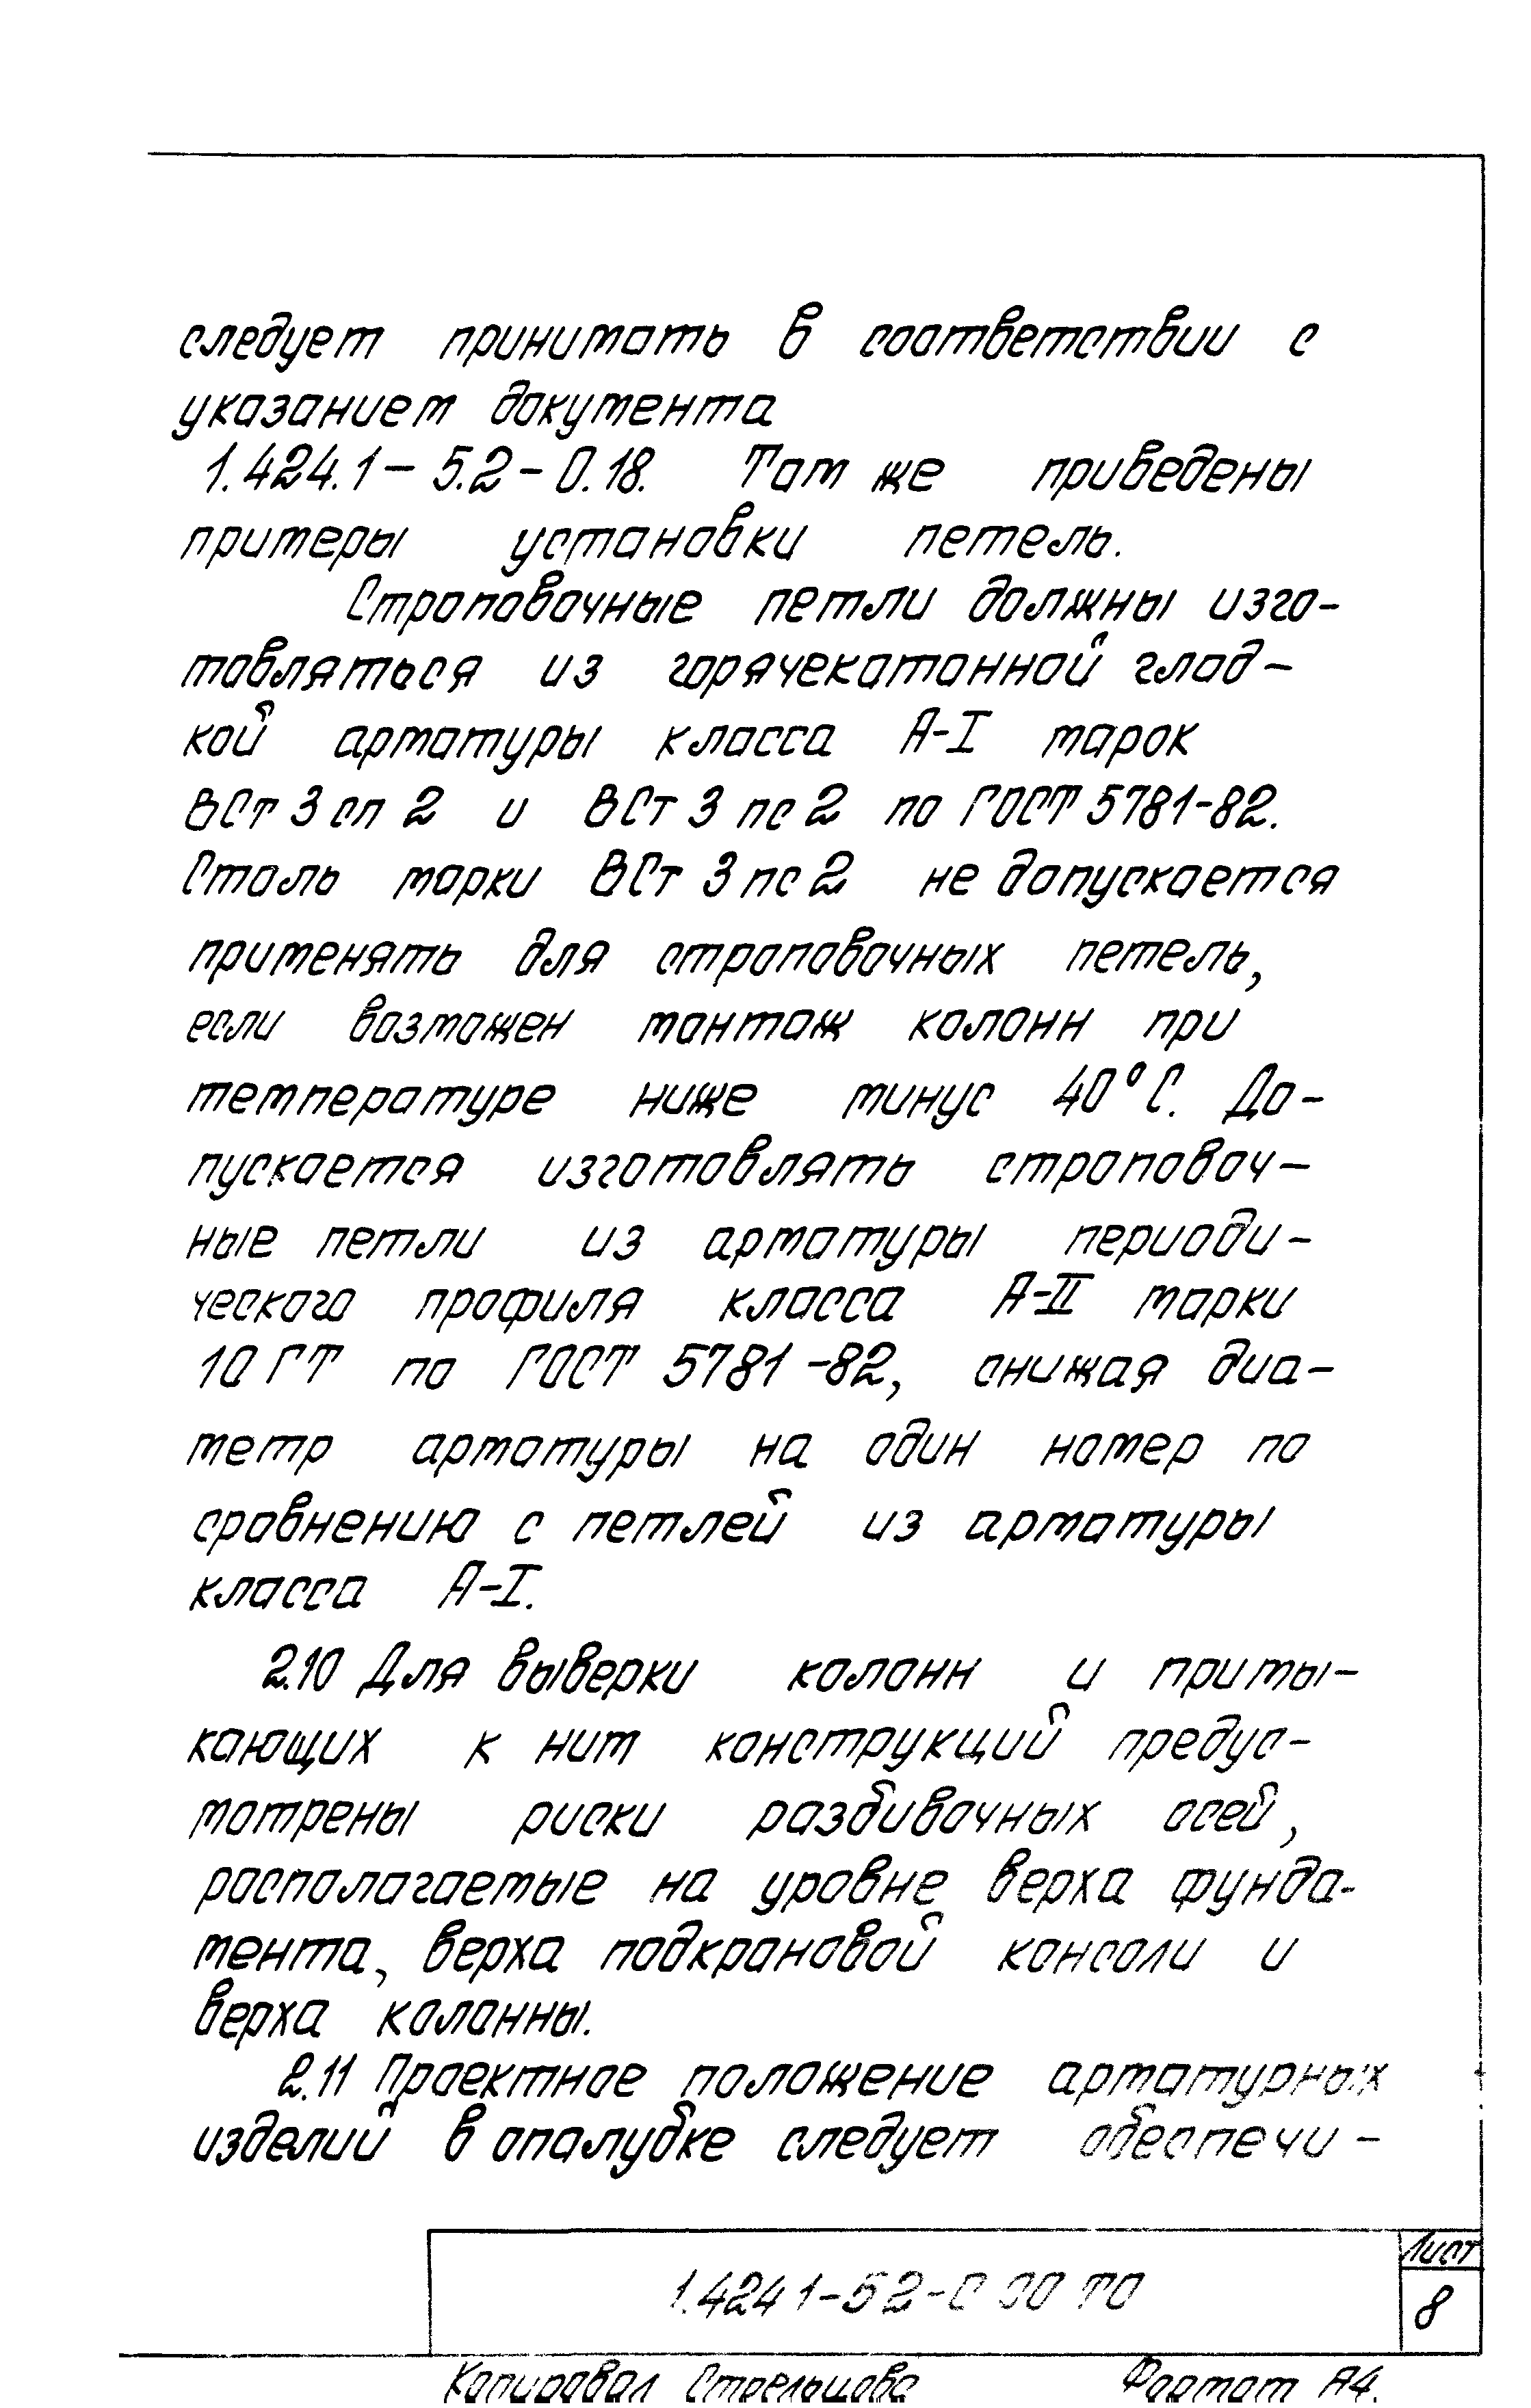 следует принимать в соответствии с
указанием документа
1.424.1 – 5.2 – 0.18. Там же приведены
примеры установки петель.
Строповочные петли должны изго-
товляться из горячекатанной глад-
кой арматуры класса А-I марок
ВСт 3 сп 2 и ВСт 3 пс 2 по ГОСТ 5781-82.
Сталь марки ВСт 3 пс 2 не допускается
применять для строповочных петель,
если возможен монтаж колонн при
температуре ниже минус 40°С. До-
пускается изготовлять строповоч-
ные петли из арматуры периоди-
ческого профиля класса А-II марки
10 ГТ по ГОСТ 5781-82, снижая диа-
метр арматуры на один номер по
сравнению с петлей из арматуры
класса А-I.
2.10 Для выверки колонн и примы-
кающих к ним конструкций предус-
мотрены риски разбивочных осей,
располагаемые на уровне верха фунда-
мента, верха подкрановой консоли и
верха колонны.
2.11 Проектное положение арматурных
изделий в опалубке следует обеспечи-
Лист
1.424 1-5 2-0 00 ТО
8
Копировал Стрельцова Формат А4.